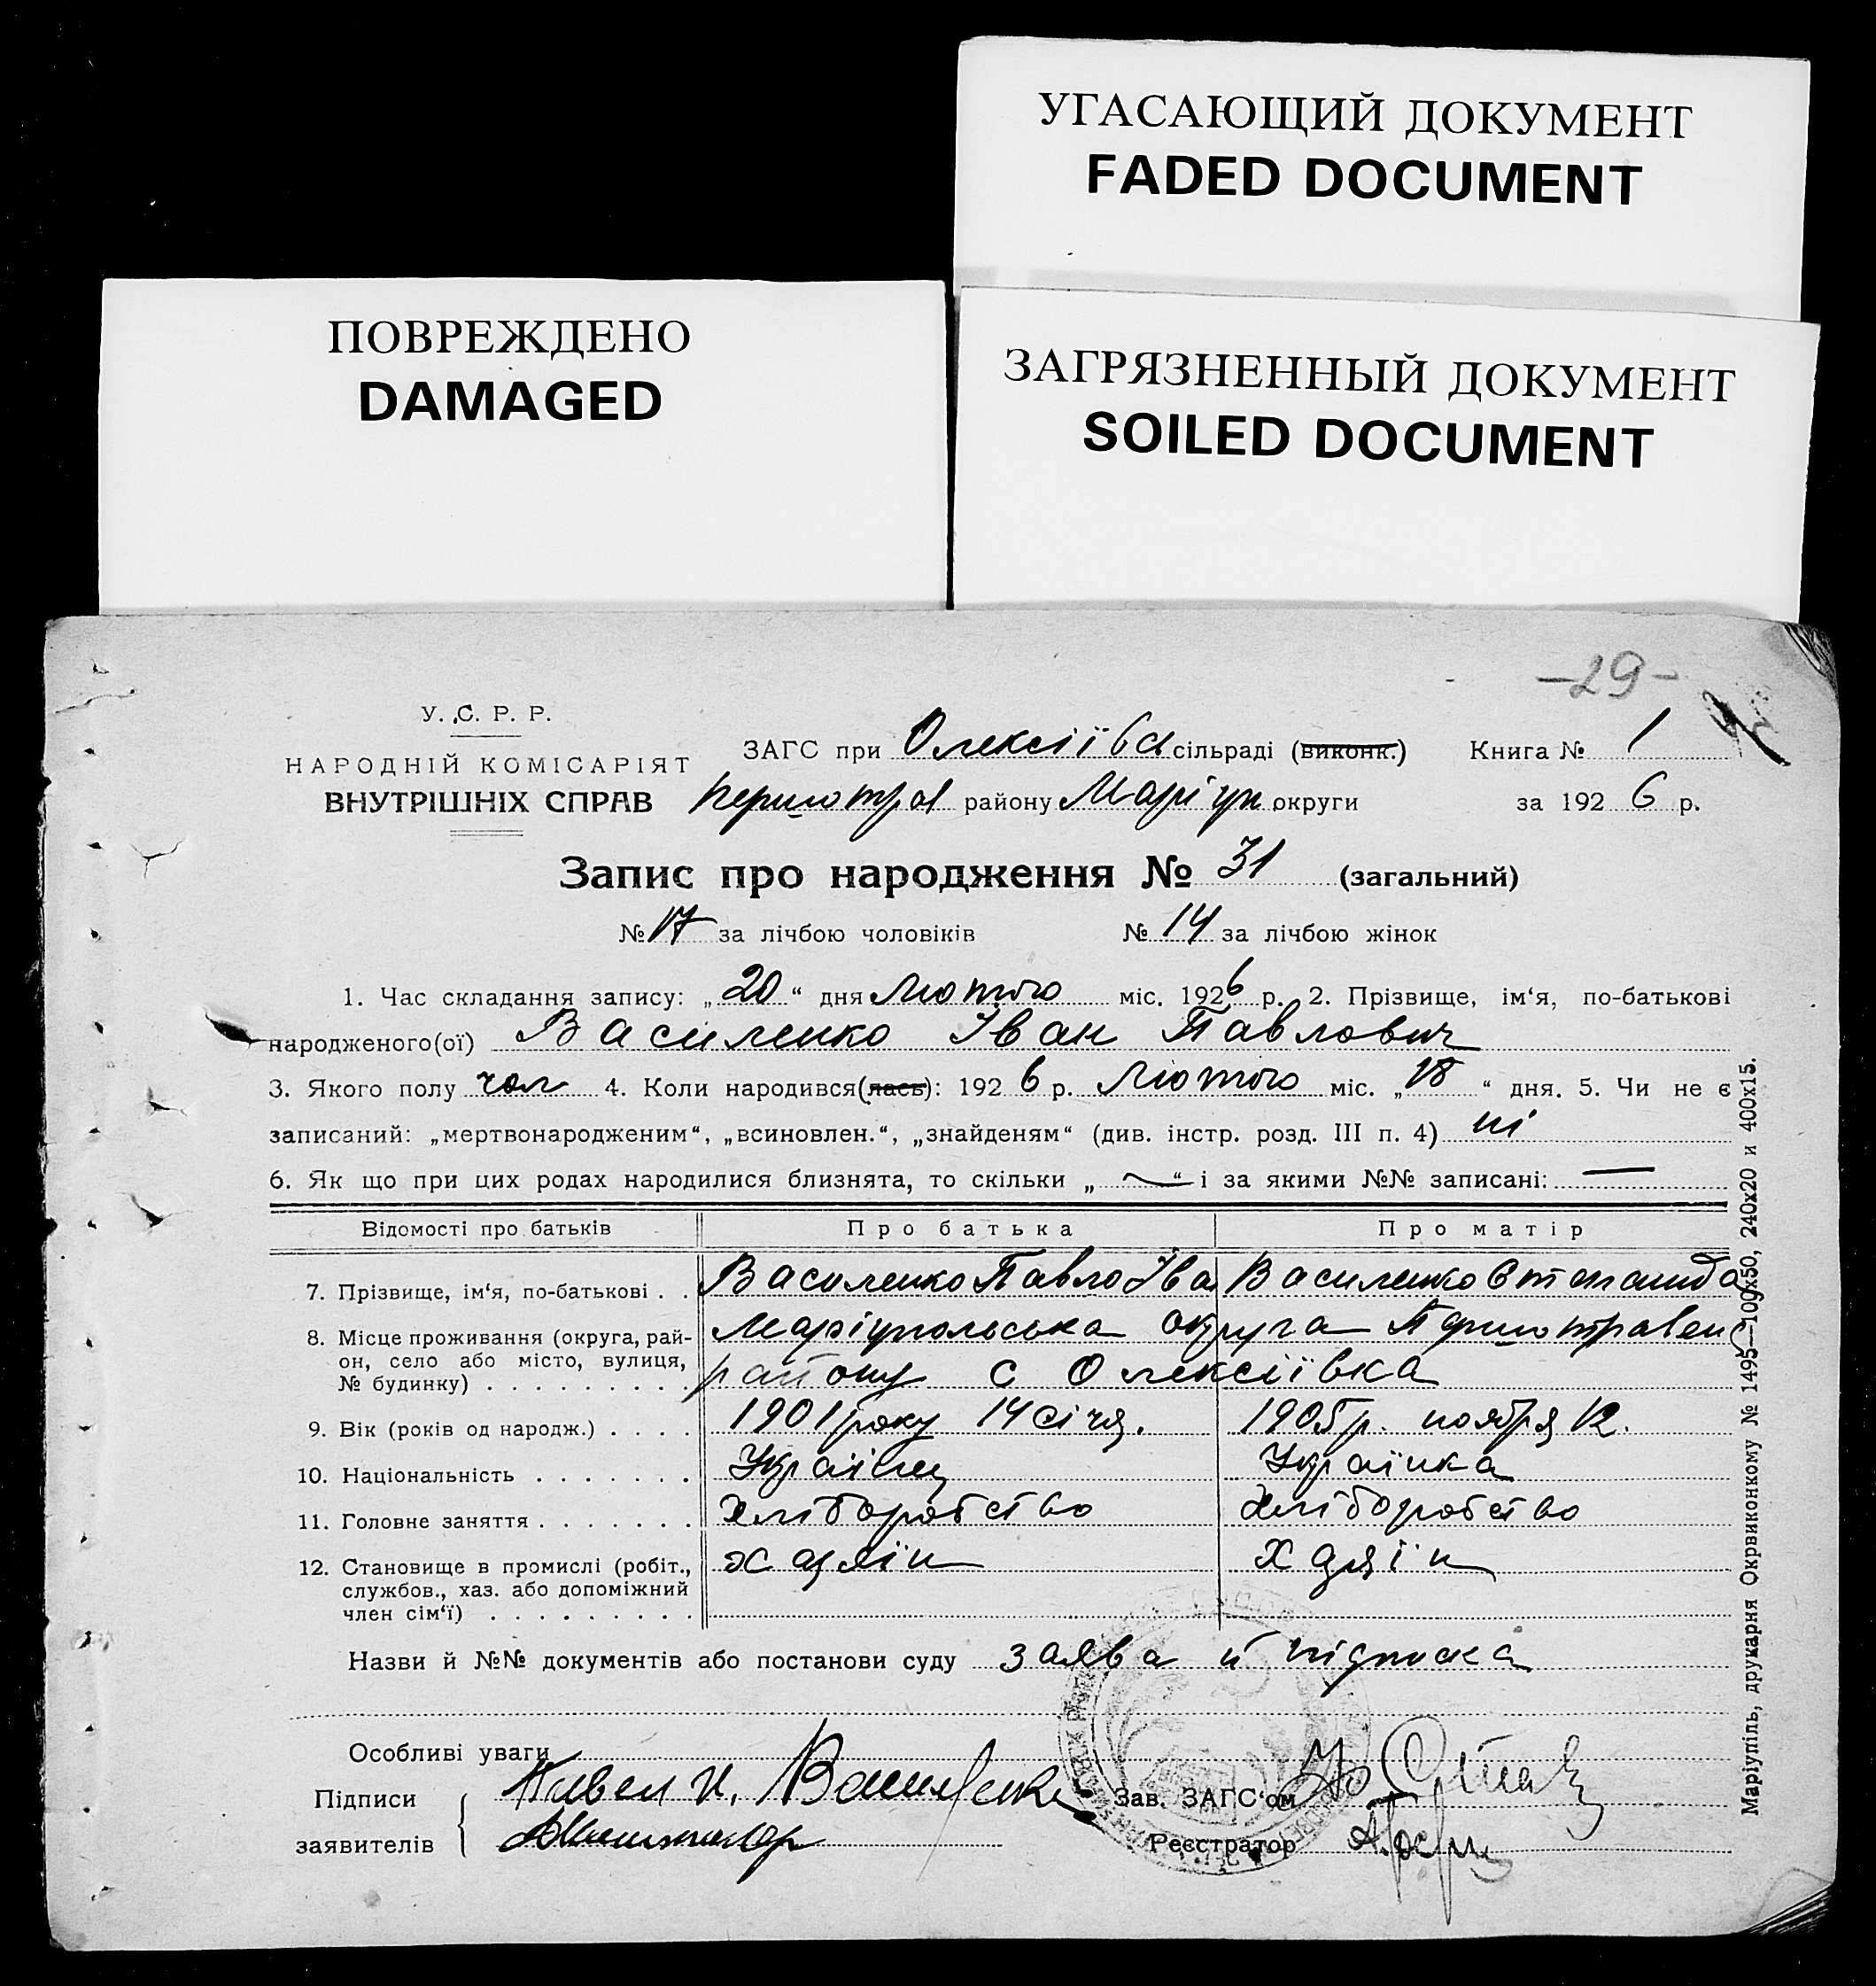 УГАСАЮЩИЙ ДОКУМЕНТ
FADED DOCUMENT
ПОВРЕЖДЕНО
DAMAGED
ЗАГРЯЗНЕННЫЙ ДОКУМЕНТ
SOILED DOCUMENT
-29-
У. С. Р. Р.
НАРОДНІЙ КОМІСАРІЯТ
ВНУТРІШНІХ СПРАВ
ЗАГС при Олексіївс сільраді (виконк.) Книга № 1
Першотрав району Маріуп округи за 1926 р.
Запис про народження № 31 (загальний)
№ 17 за лічбою чоловіків № 14 за лічбою жінок
1. Час складання запису: „20“ дня Лютого міс. 1926 р. 2. Прізвище, ім‘я, по-батькові
народженого(ої) Василенко Іван Павлович
3. Якого полу чол 4. Коли народився(лась): 1926 р. Лютого міс. „18“ дня. 5. Чи не є
записаний: „мертвонародженим“, „всиновлен.“, „знайденям“ (див. інстр. розд. III п. 4) ні
6. Як що при цих родах народилися близнята, то скільки „ ~ “ і за якими №№ записані: —
Відомості про батьків Про батька Про матір
7. Прізвище, ім‘я, по-батькові . . Василенко Павло Іва Василенко Степанида
8. Місце проживання (округа, рай-он, село або місто, вулиця, № будинку) . . . . . . . . . Маріупольська округа Першотравен
району с Олексіївка
9. Вік (років од народж.) . . . . 1901 року 14 січня. 1905 р. ноября 12.
10. Національність . . . . . . . Українец Українка
11. Головне заняття . . . . . . . Хліборобство Хліборобство
12. Становище в промислі (робіт., службов., хаз. або допоміжний член сім‘ї) . . . . . . . . . хазяїн Хазяїн
Назви й №№ документів або постанови суду заява й підписка
Особливі уваги
Підписи Павел И. Василенко Зав. ЗАГС‘ом
заявителів Реєстратор
Маріупіль, друкарня Окрвиконкому № 1495—100х50, 240х20 и 400х15.